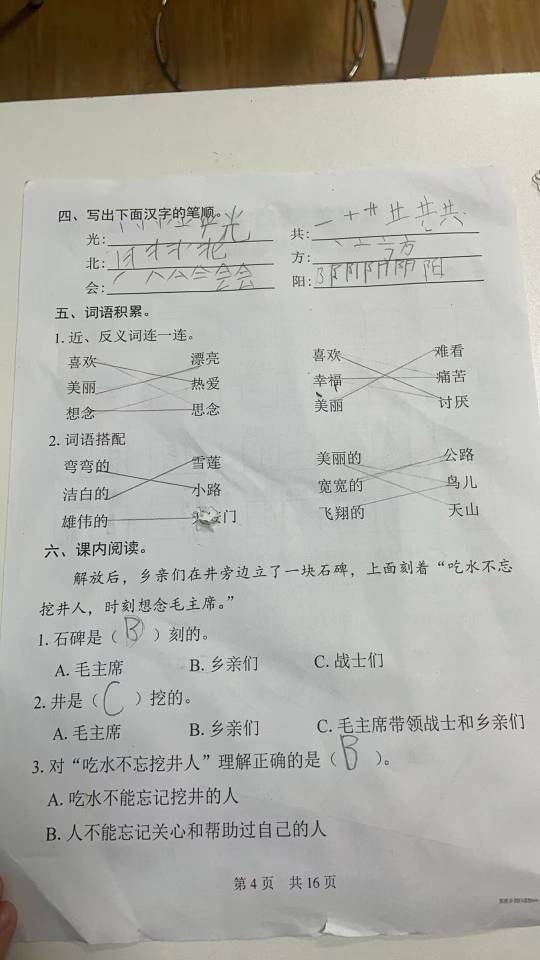 四、写出下面汉字的笔顺。
光: 光 共: 一 十 卄 共 共
北: 北 方: 丶 亠 方 方
会: 丿 人 会 会 阳: 阳
五、词语积累。
1. 近、反义词连一连。
喜欢 漂亮 喜欢 难看
美丽 热爱 幸福 痛苦
想念 思念 美丽 讨厌
2. 词语搭配
弯弯的 雪莲 美丽的 公路
洁白的 小路 宽宽的 鸟儿
雄伟的 门 飞翔的 天山
六、课内阅读。
解放后，乡亲们在井旁边立了一块石碑，上面刻着“吃水不忘
挖井人，时刻想念毛主席。”
1. 石碑是（ B ）刻的。
A. 毛主席 B. 乡亲们 C. 战士们
2. 井是（ C ）挖的。
A. 毛主席 B. 乡亲们 C. 毛主席带领战士和乡亲们
3. 对“吃水不忘挖井人”理解正确的是（ B ）。
A. 吃水不能忘记挖井的人
B. 人不能忘记关心和帮助过自己的人
第 4 页 共 16 页